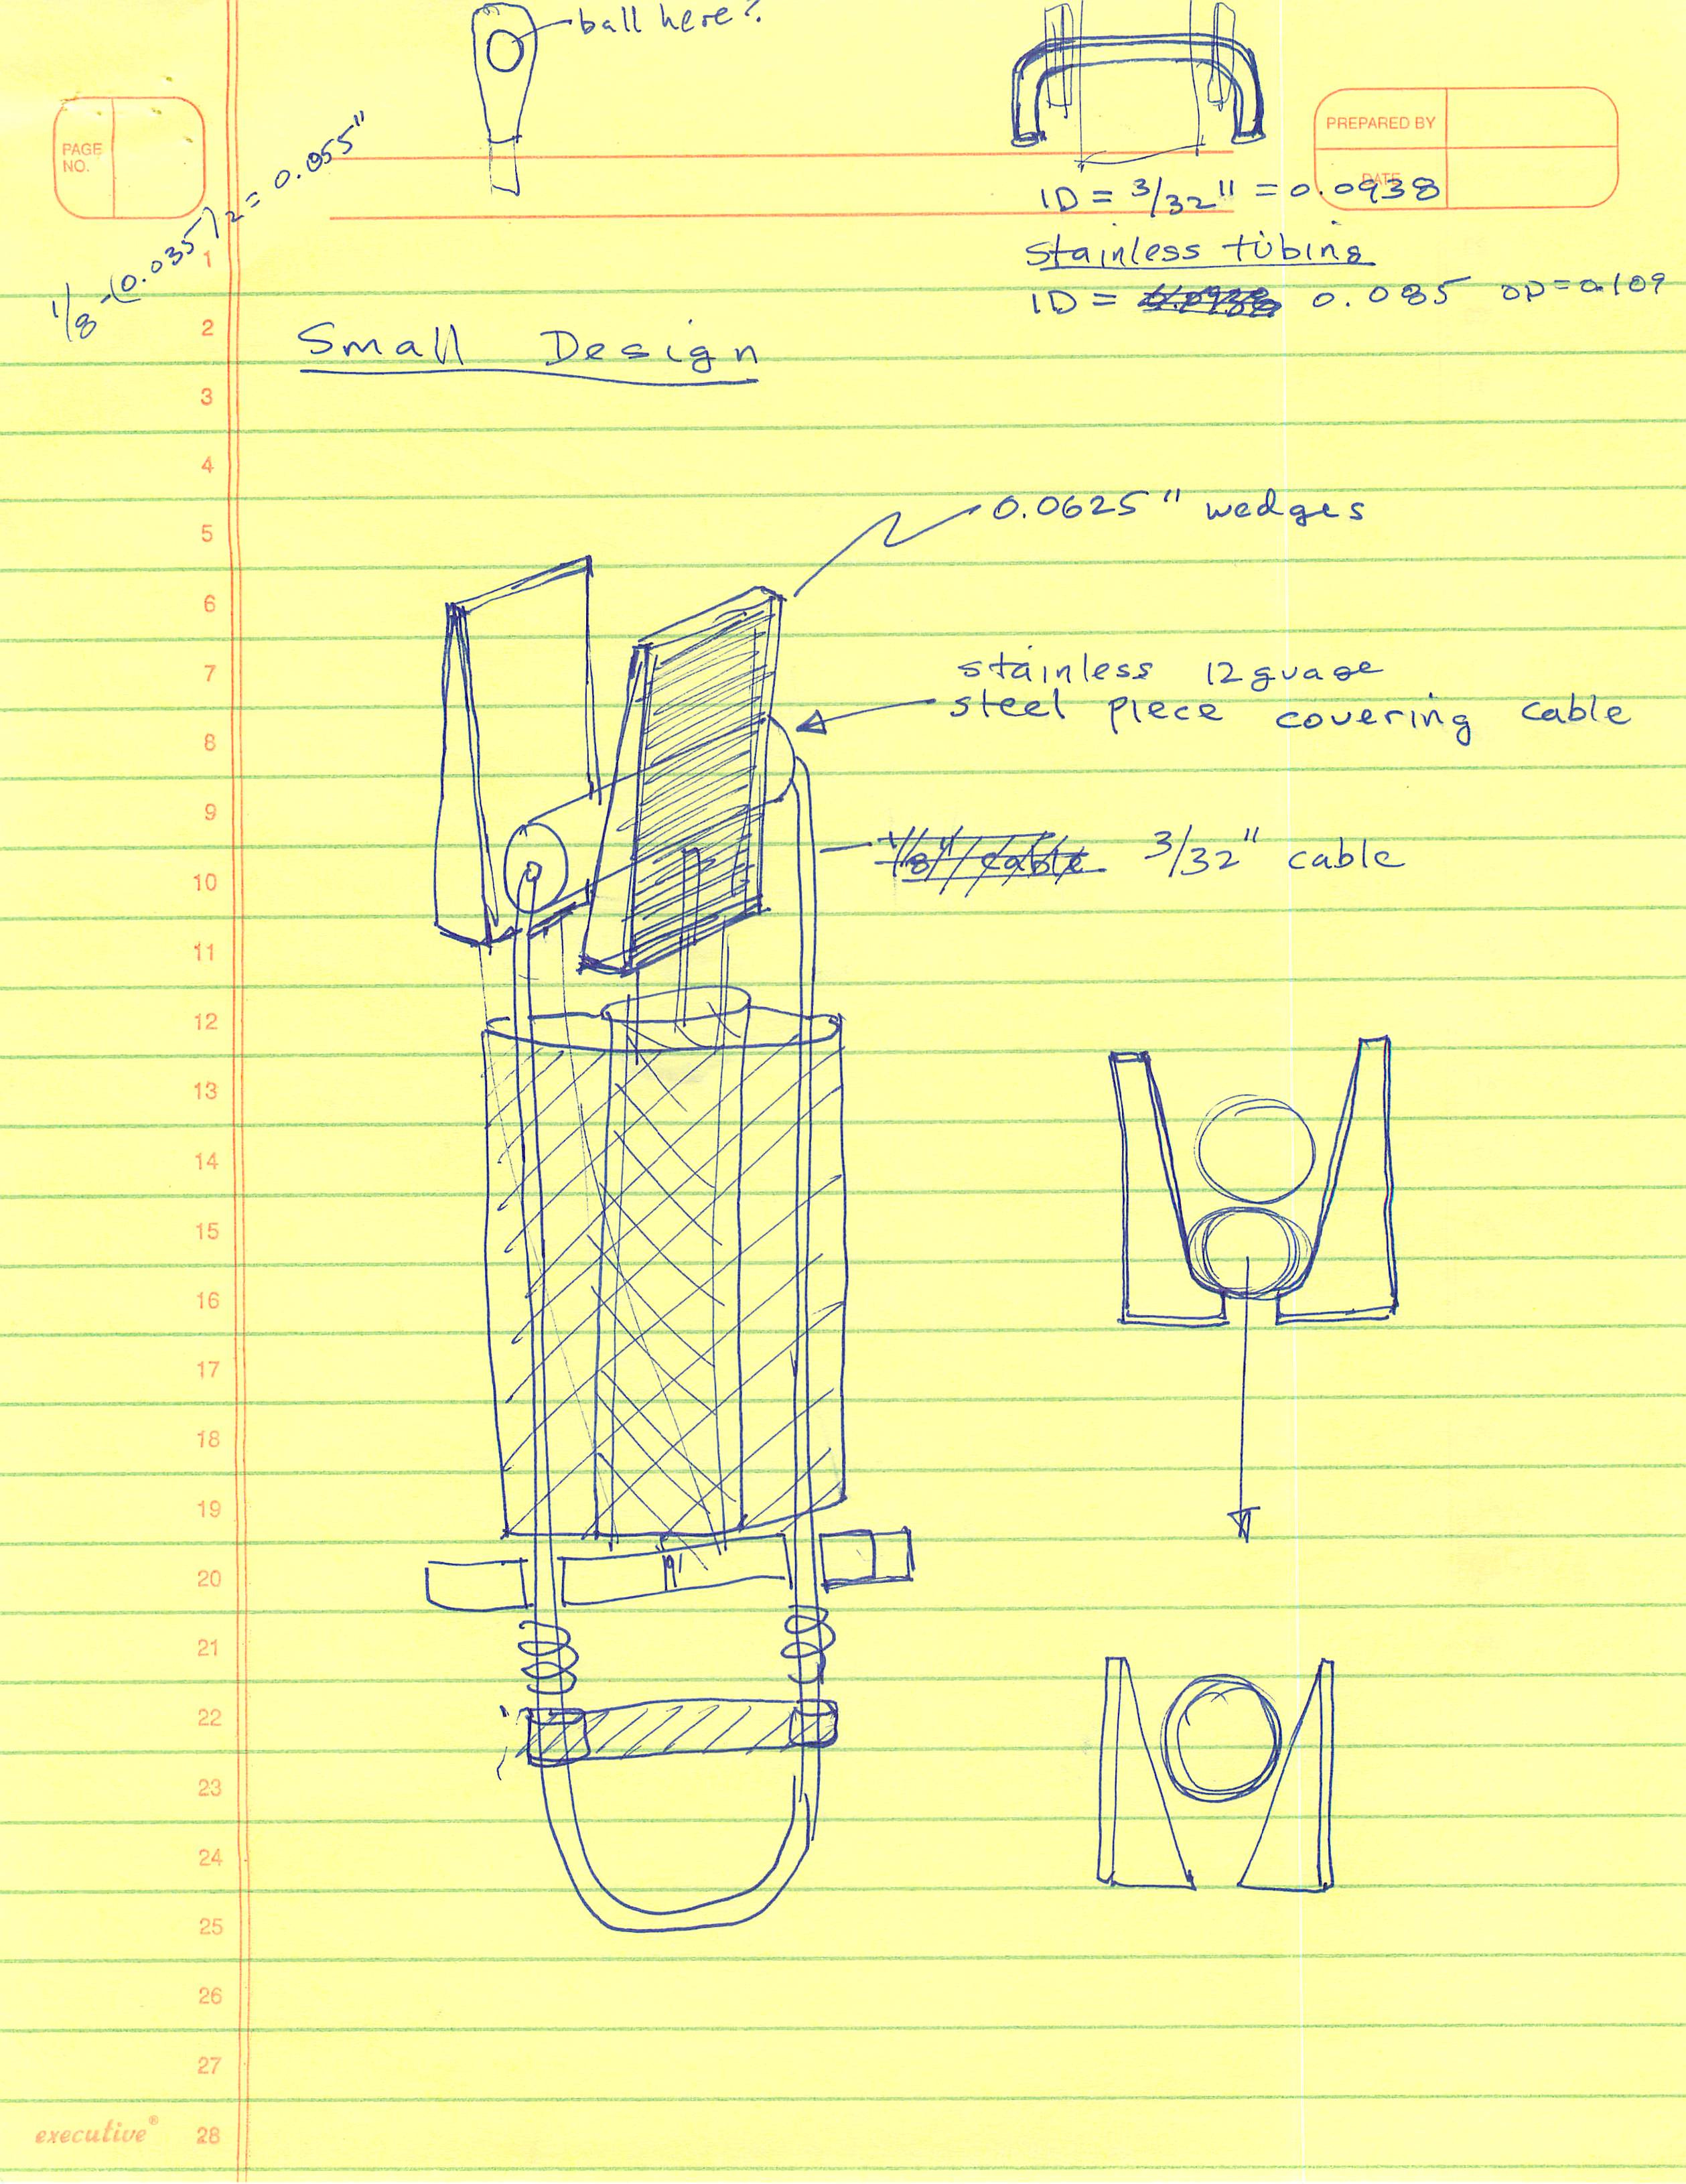 ball here?
PAGE
NO.
PREPARED BY
DATE
ID = 3/32" = 0.0938
1/8 - (0.035)/2 = 0.055"
stainless tubing
ID = 0.085 OD=0.109
Small Design
0.0625" wedges
stainless 12 guage
steel piece covering cable
1/8" cable 3/32" cable
1
2
3
4
5
6
7
8
9
10
11
12
13
14
15
16
17
18
19
20
21
22
23
24
25
26
27
28
executive®